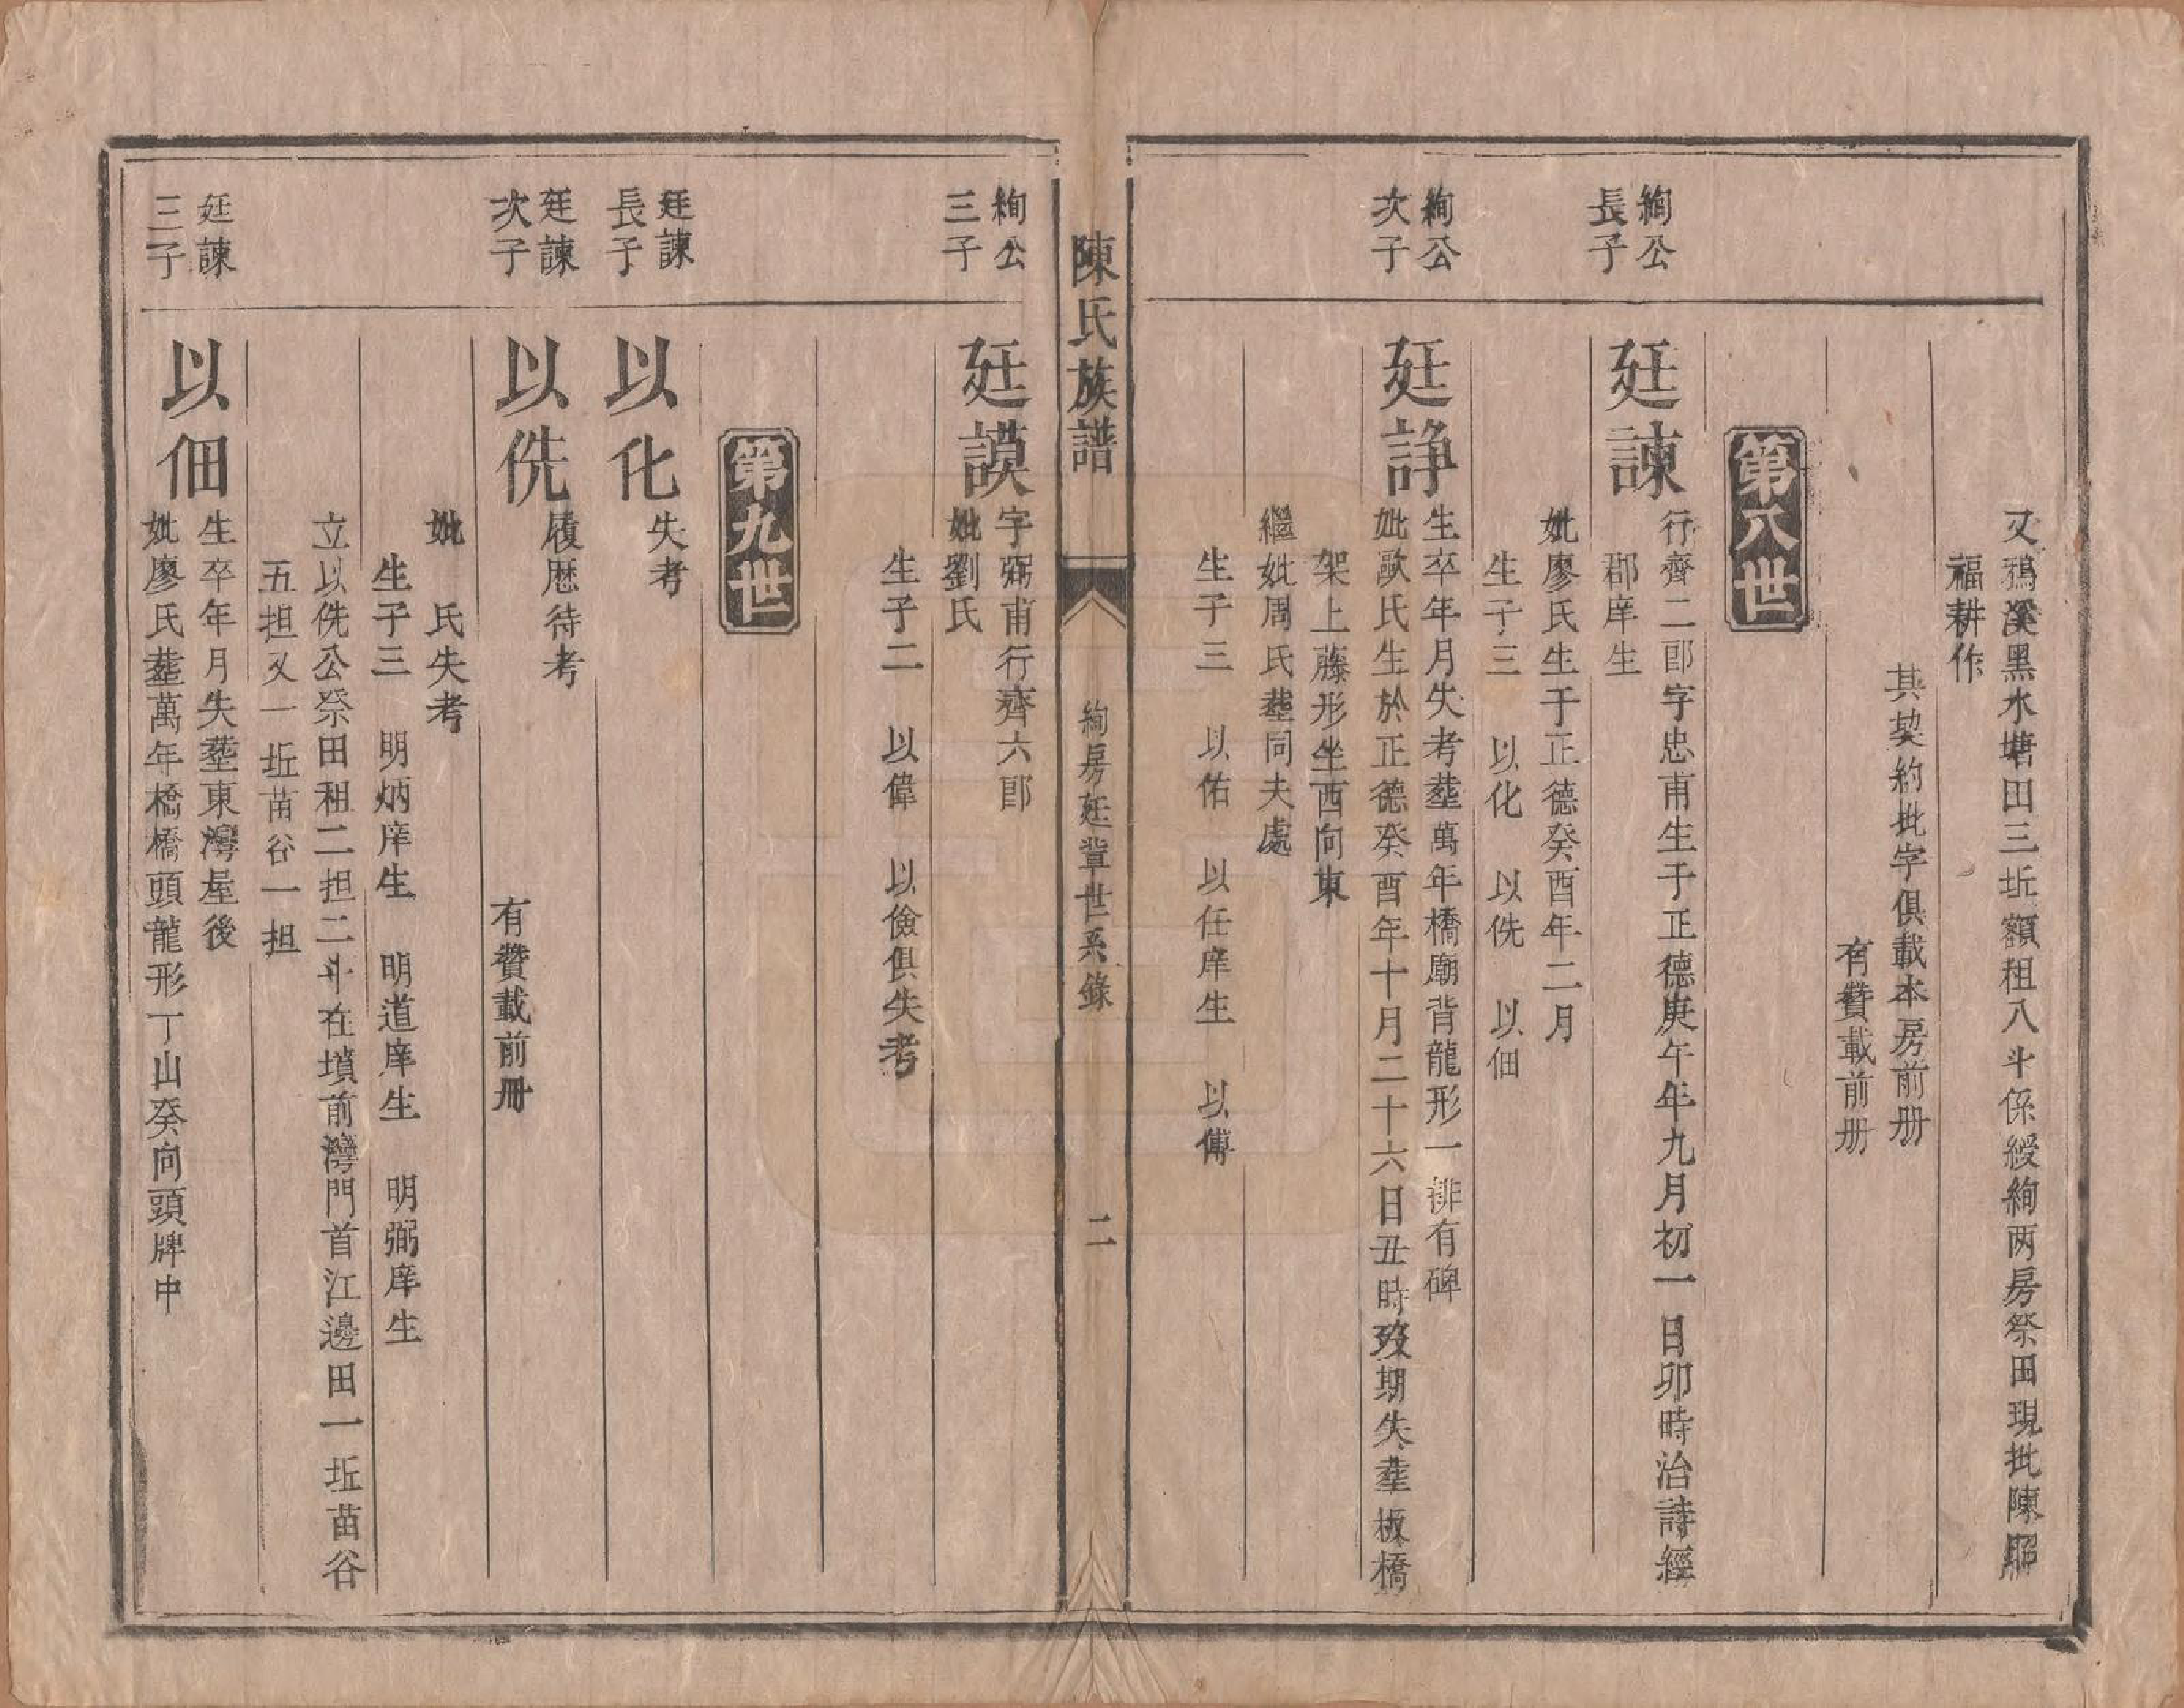 又鴉溪黑水塘田三坵額租八斗係綬絢两房祭田現批陳昭
福耕作
其契約批字俱載本房前册
有贊載前册
第八世
絢公
長子
廷諫
行齊二郎字忠甫生于正德庚午年九月初一日卯時治詩經
郡庠生
妣廖氏生于正德癸酉年二月
生子三 以化 以侁 以佃
絢公
次子
廷諍
生卒年月失考塟萬年橋廟背龍形一排有碑
妣歐氏生於正德癸酉年十月二十六日丑時歿期失塟板橋
架上藤形坐西向東
繼妣周氏塟同夫處
生子三 以佑 以任庠生 以傳
陳氏族譜
絢房廷輩世系錄
二
絢公
三子
廷謨
字弼甫行齊六郎
妣劉氏
生子二 以偉 以儉俱失考
第九世
廷諫
長子
以化
失考
廷諫
次子
以侁
履歷待考
有贊載前冊
妣 氏失考
生子三 明炳庠生 明道庠生 明弼庠生
立以侁公祭田租二担二斗在墳前灣門首江邊田一坵苗谷
五担又一坵苗谷一担
廷諫
三子
以佃
生卒年月失塟東灣屋後
妣廖氏塟萬年橋橋頭龍形丁山癸向頭牌中